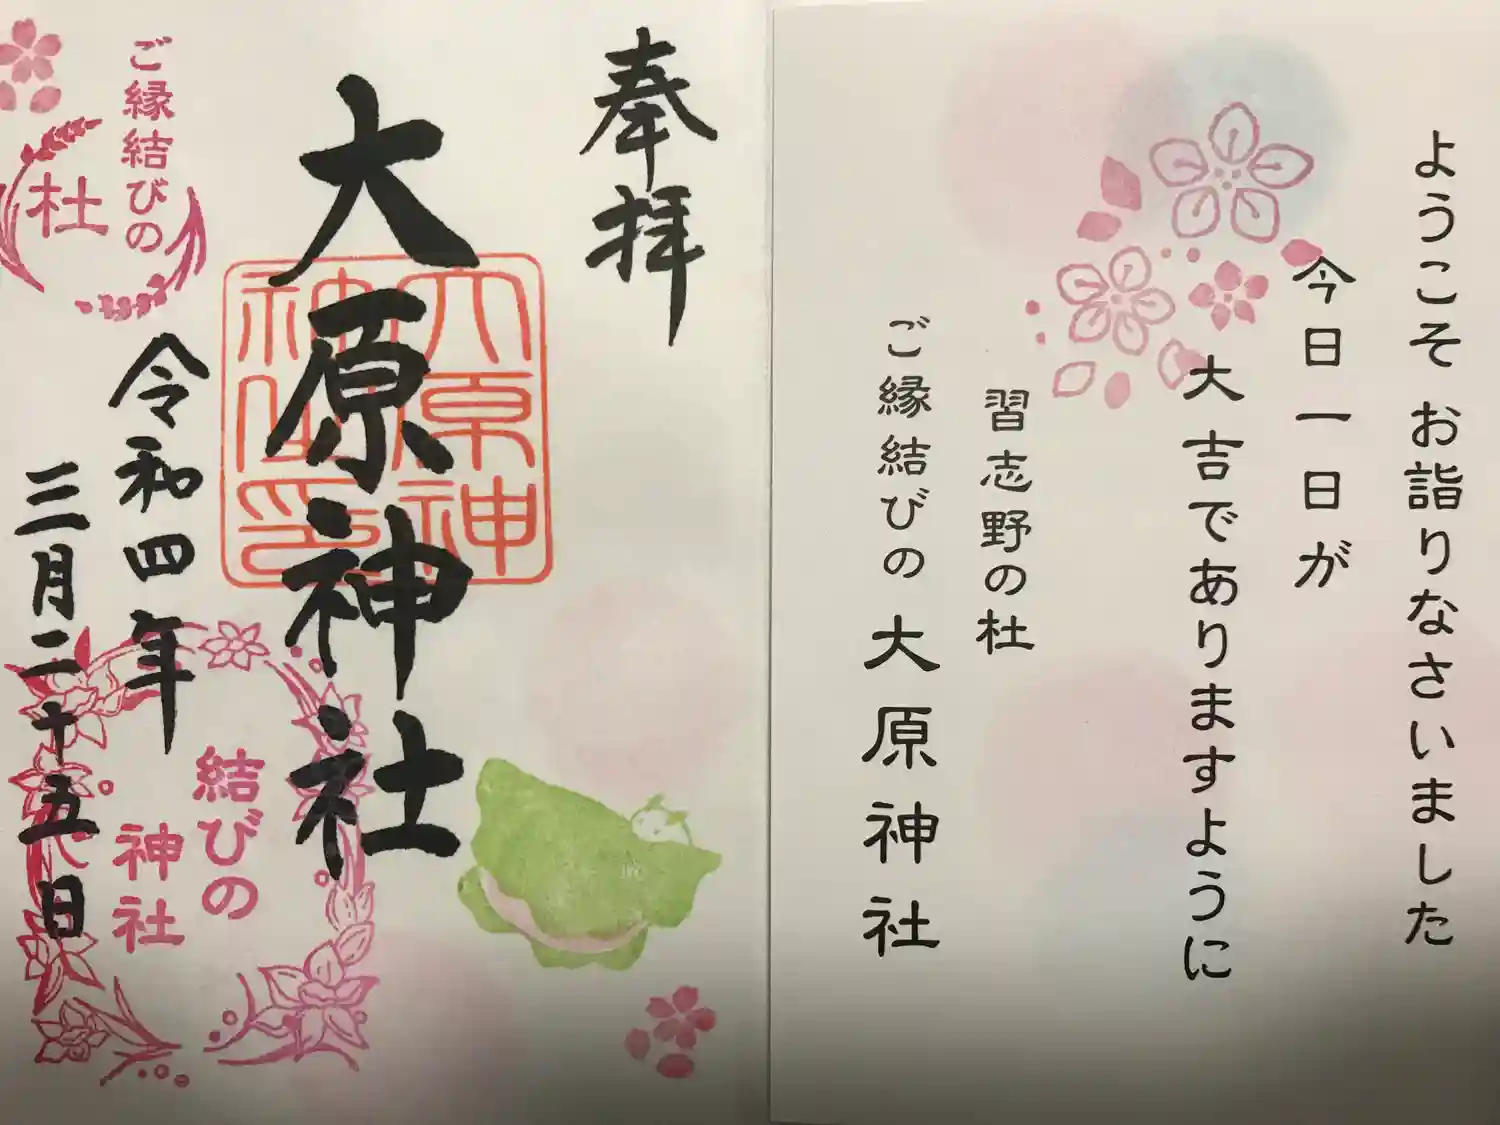 ようこそ お詣りなさいました
今日一日が
大吉でありますように
習志野の杜
ご縁結びの 大原神社
奉拝
大原神社
大原神
神社印
ご縁結びの
杜
令和四年
三月二十五日
結びの
神社